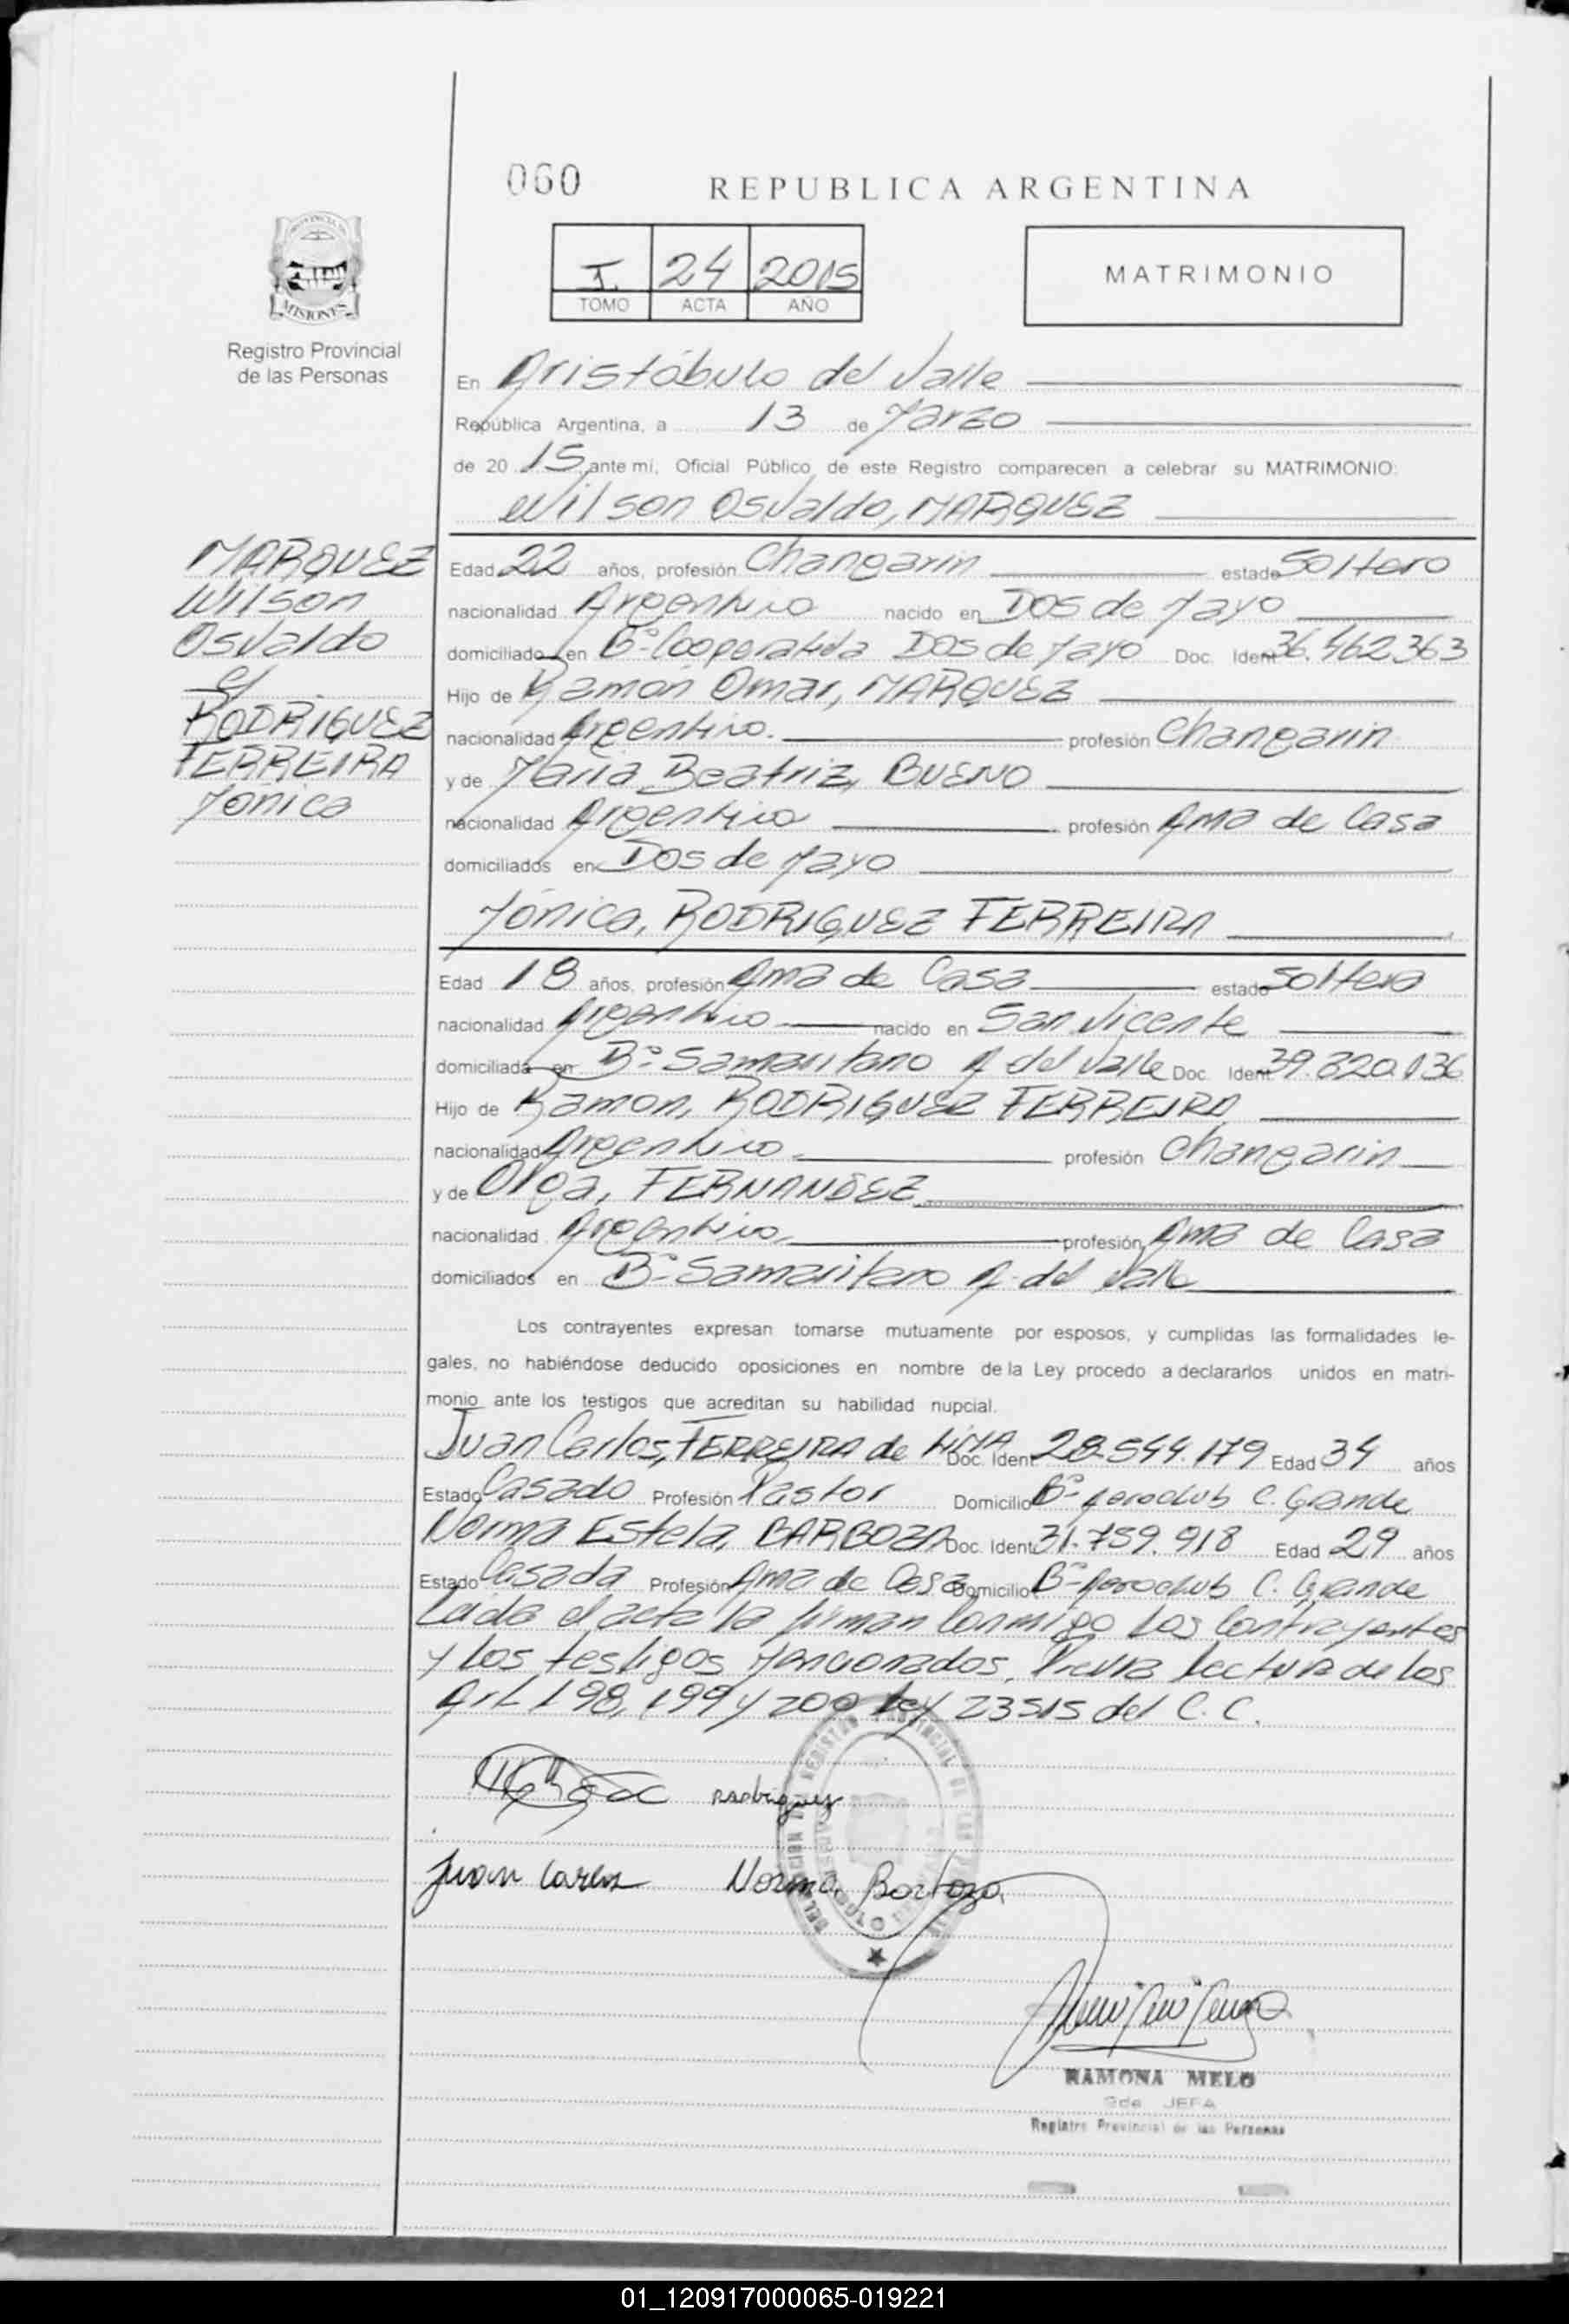 060
REPUBLICA ARGENTINA
I. 24 2015
TOMO ACTA AÑO
MATRIMONIO
PROVINCIA DE
MISIONES
Registro Provincial
de las Personas
En Aristóbulo del Valle
República Argentina, a 13 de Marzo
de 20 15 ante mi, Oficial Público de este Registro comparecen a celebrar su MATRIMONIO:
Wilson Osvaldo, MARQUEZ
MARQUEZ
Wilson
Osvaldo
c/
RODRIGUEZ
FERREIRA
Mónica
Edad 22 años, profesión Changarin estado Soltero
nacionalidad Argentino nacido en Dos de Mayo
domiciliado en B° Cooperativa Dos de Mayo Doc. Ident 36.462.363
Hijo de Ramon Omar, MARQUEZ
nacionalidad Argentino. profesión Changarin
y de Maria Beatriz, BUENO
nacionalidad Argentino profesión Ama de Casa
domiciliados en Dos de Mayo
Mónica, RODRIGUEZ FERREIRA
Edad 18 años, profesión Ama de Casa estado Soltera
nacionalidad Argentino nacido en San Vicente
domiciliada en B° Samaritano A del Valle Doc. Ident. 39.820.136
Hijo de Ramon, RODRIGUEZ FERREIRA
nacionalidad Argentino profesión Changarin
y de Olga, FERNANDEZ
nacionalidad Argentino profesión Ama de Casa
domiciliados en B° Samaritano A. del Valle
Los contrayentes expresan tomarse mutuamente por esposos, y cumplidas las formalidades le-
gales, no habiéndose deducido oposiciones en nombre de la Ley procedo a declararlos unidos en matri-
monio ante los testigos que acreditan su habilidad nupcial.
Juan Carlos, FERREIRA de LIMA Doc. Ident 28.544.179 Edad 34 años
Estado Casado Profesión Pastor Domicilio B° Aeroclub C. Grande
Norma Estela, BARBOZA Doc. Ident. 31.759.918 Edad 29 años
Estado Casada Profesión Ama de Casa Domicilio B° Aeroclub C. Grande
Leida el acta la firman Conmigo Los Contrayentes
y Los testigos Mencionados, Previa Lectura de los
Art. 198, 199 y 200 Ley 23515 del C. C.
Rodriguez
Juan Carlos Norma Barboza
RAMONA MELO
2da JEFA
Registro Provincial de las Personas
01_120917000065-019221